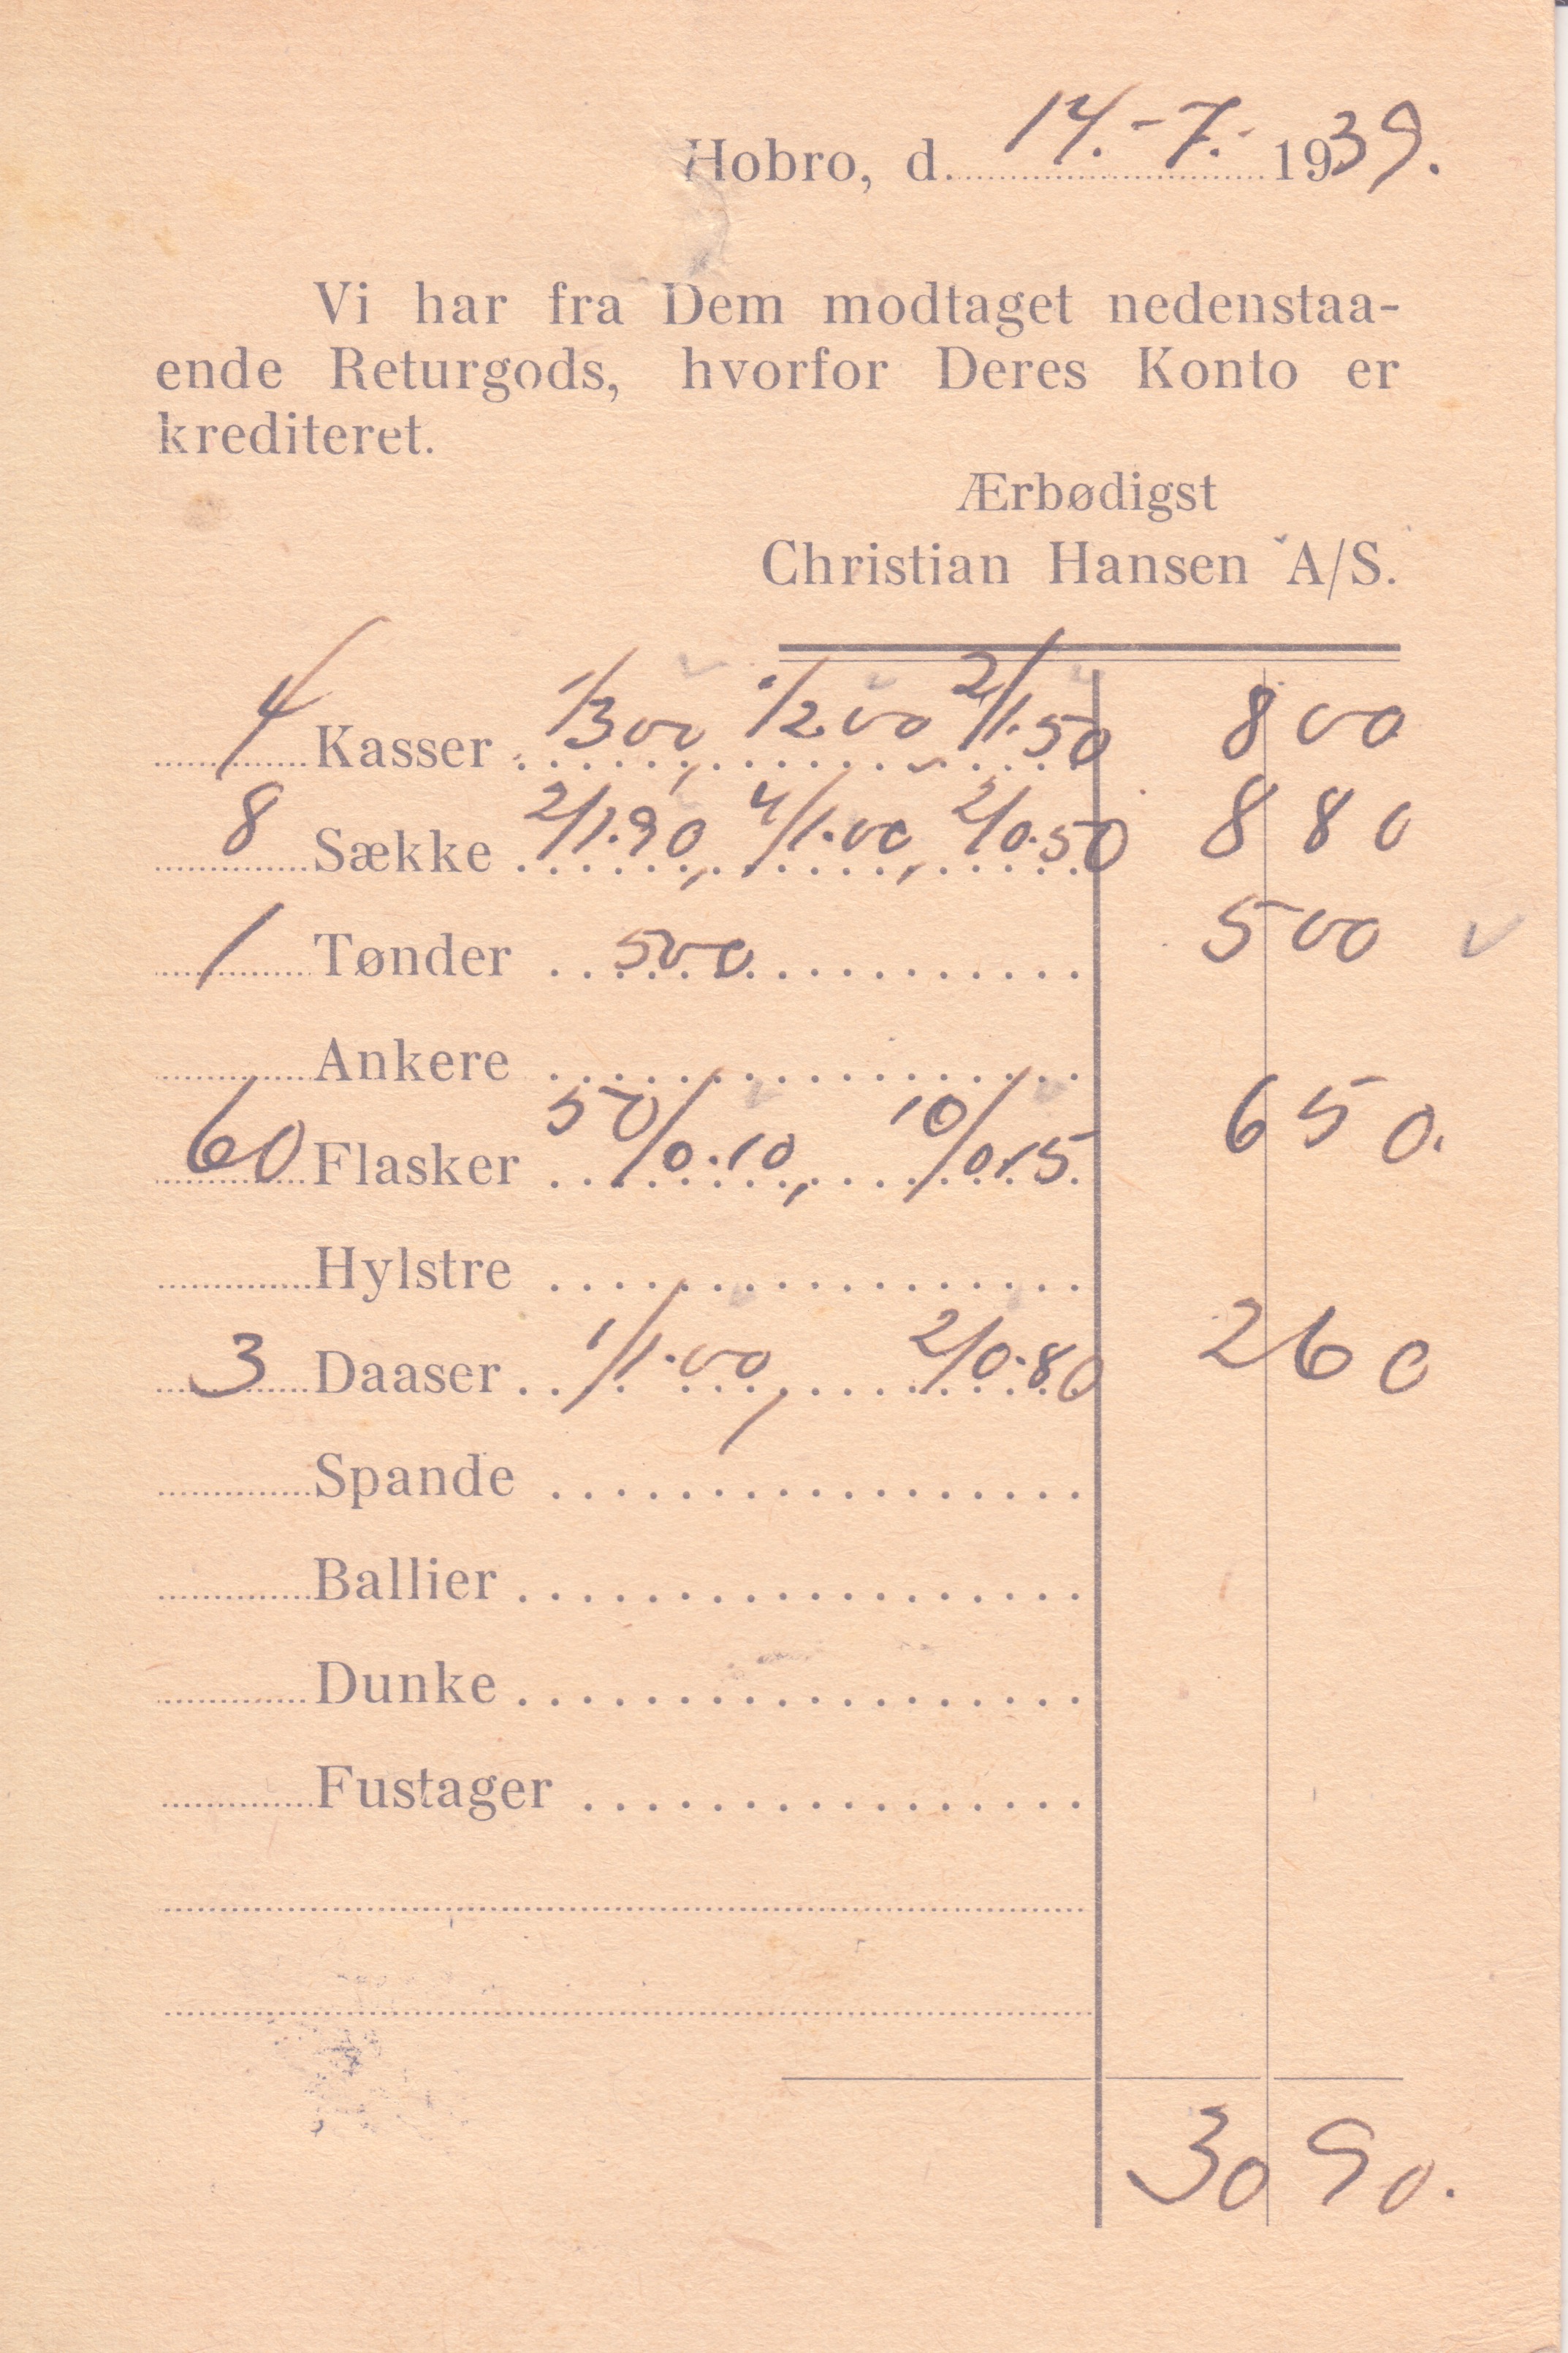 Hobro, d. 14.-7.- 1939.
Vi har fra Dem modtaget nedenstaa-
ende Returgods, hvorfor Deres Konto er
krediteret.
Ærbødigst
Christian Hansen A/S.
4 Kasser 1/3 00, 1/2.00, 2/1.50 8 00
8 Sække 2/1.90, 4/1.00, 2/0.50 8 80
1 Tønder 500 5 00
Ankere
60 Flasker 50/0.10, 10/0.15 6 50.
Hylstre
3 Daaser 1/1.00, 2/0.80 2 60
Spande
Ballier
Dunke
Fustager
30 90.